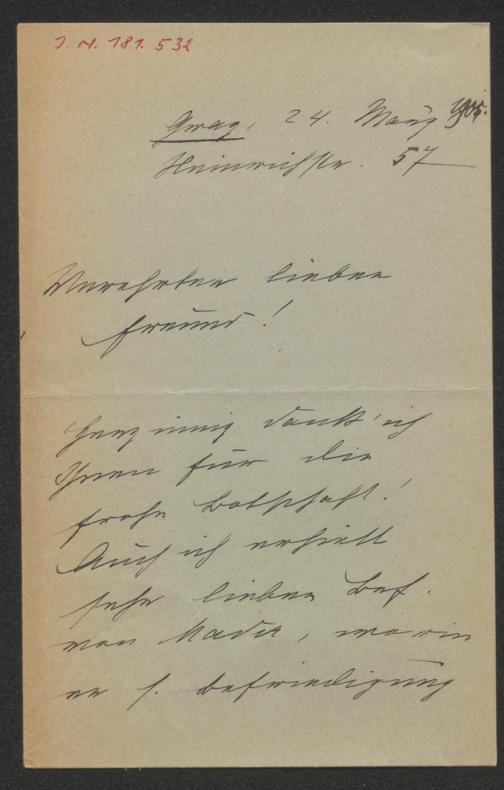 J. N. 181.532
Graz, 24. März 905.
Heinrichstr. 57
Verehrter lieber
Freund!
Herzinnig dank' ich
Ihnen für die
frohe Botschaft!
Auch ich erhielt
sehr lieben
von worin
er s. Befriedigung